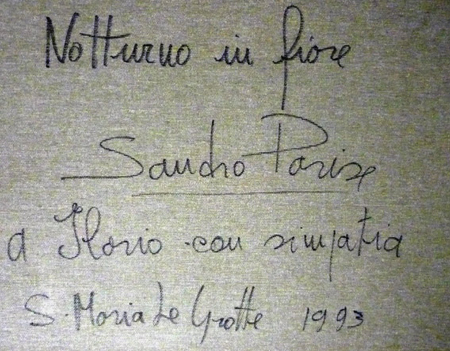 Notturno in fiore
Sandro Parise
a Ilario con simpatia
S. Maria Le Grotte 1993